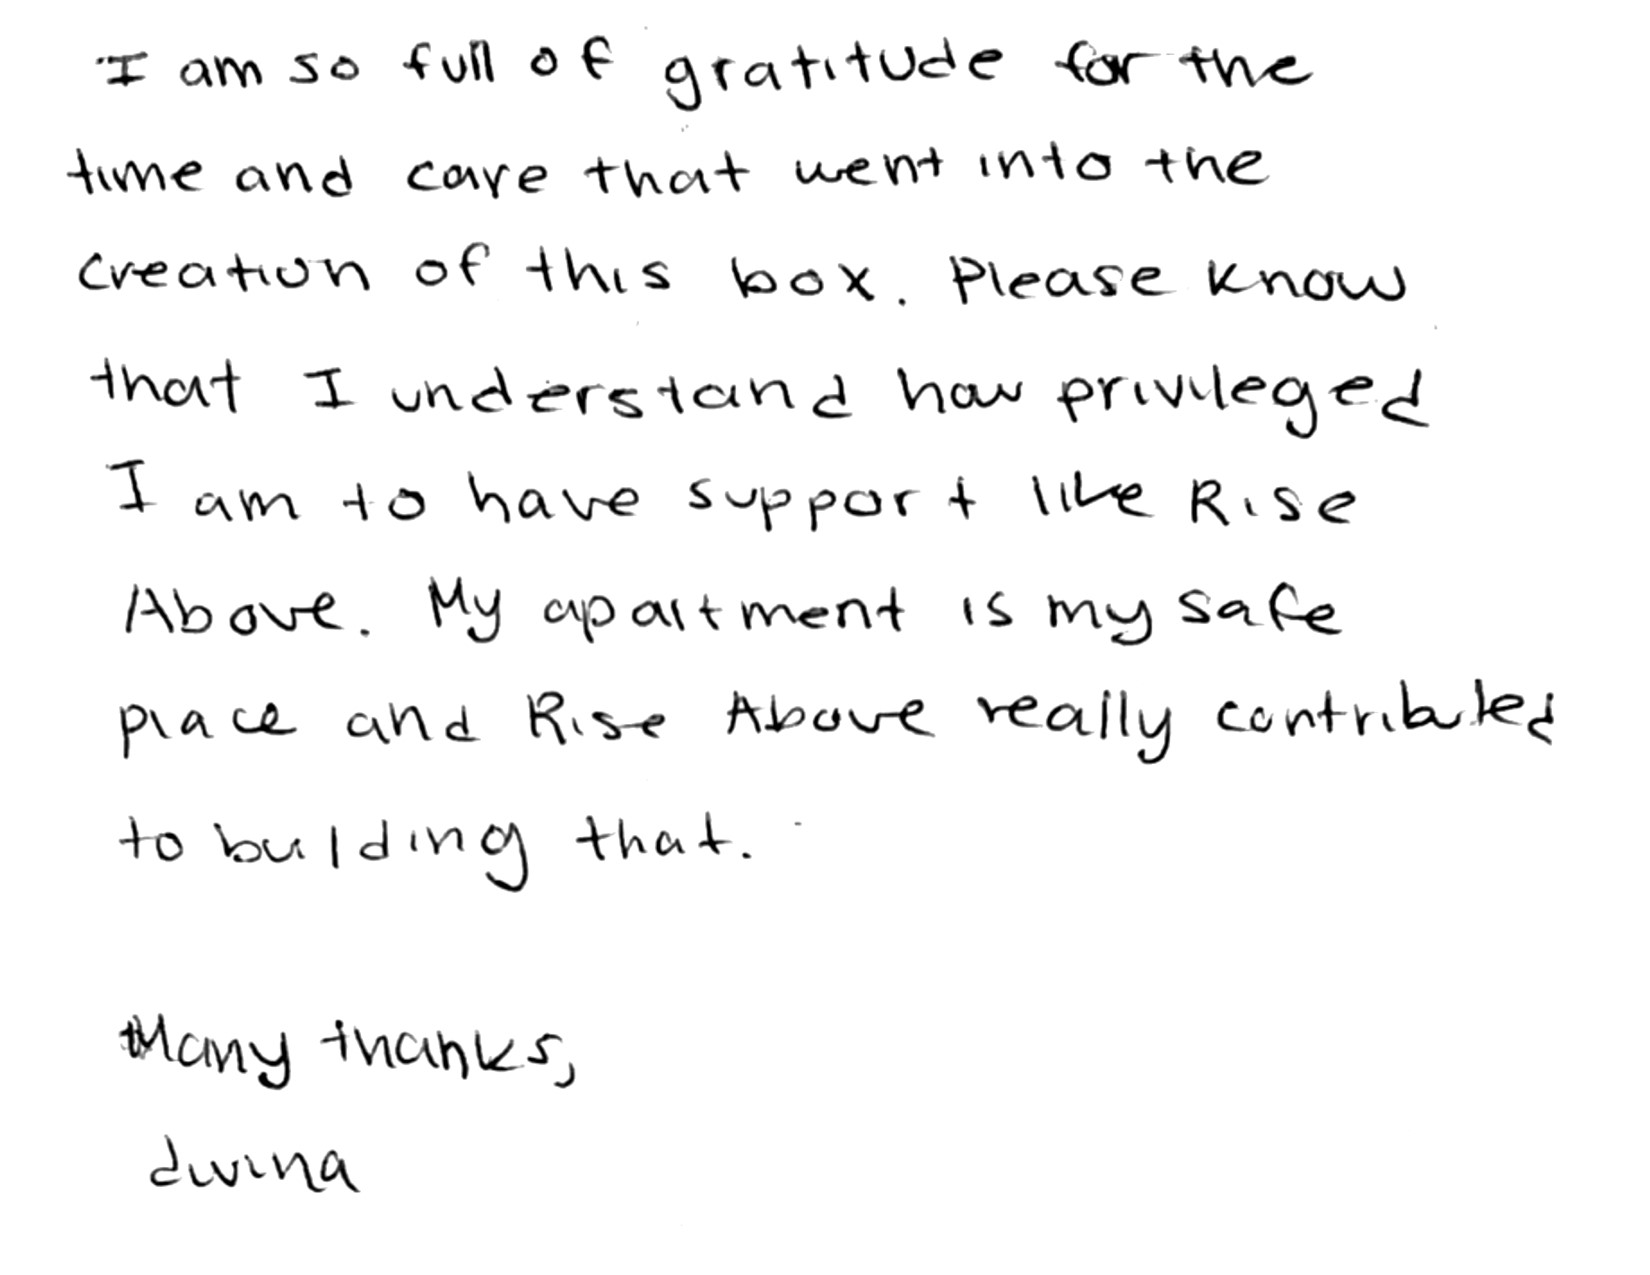 I am so full of gratitude for the
time and care that went into the
creation of this box. Please know
that I understand how privileged
I am to have support like Rise
Above. My apartment is my safe
place and Rise Above really contributed
to building that.
Many thanks,
divina